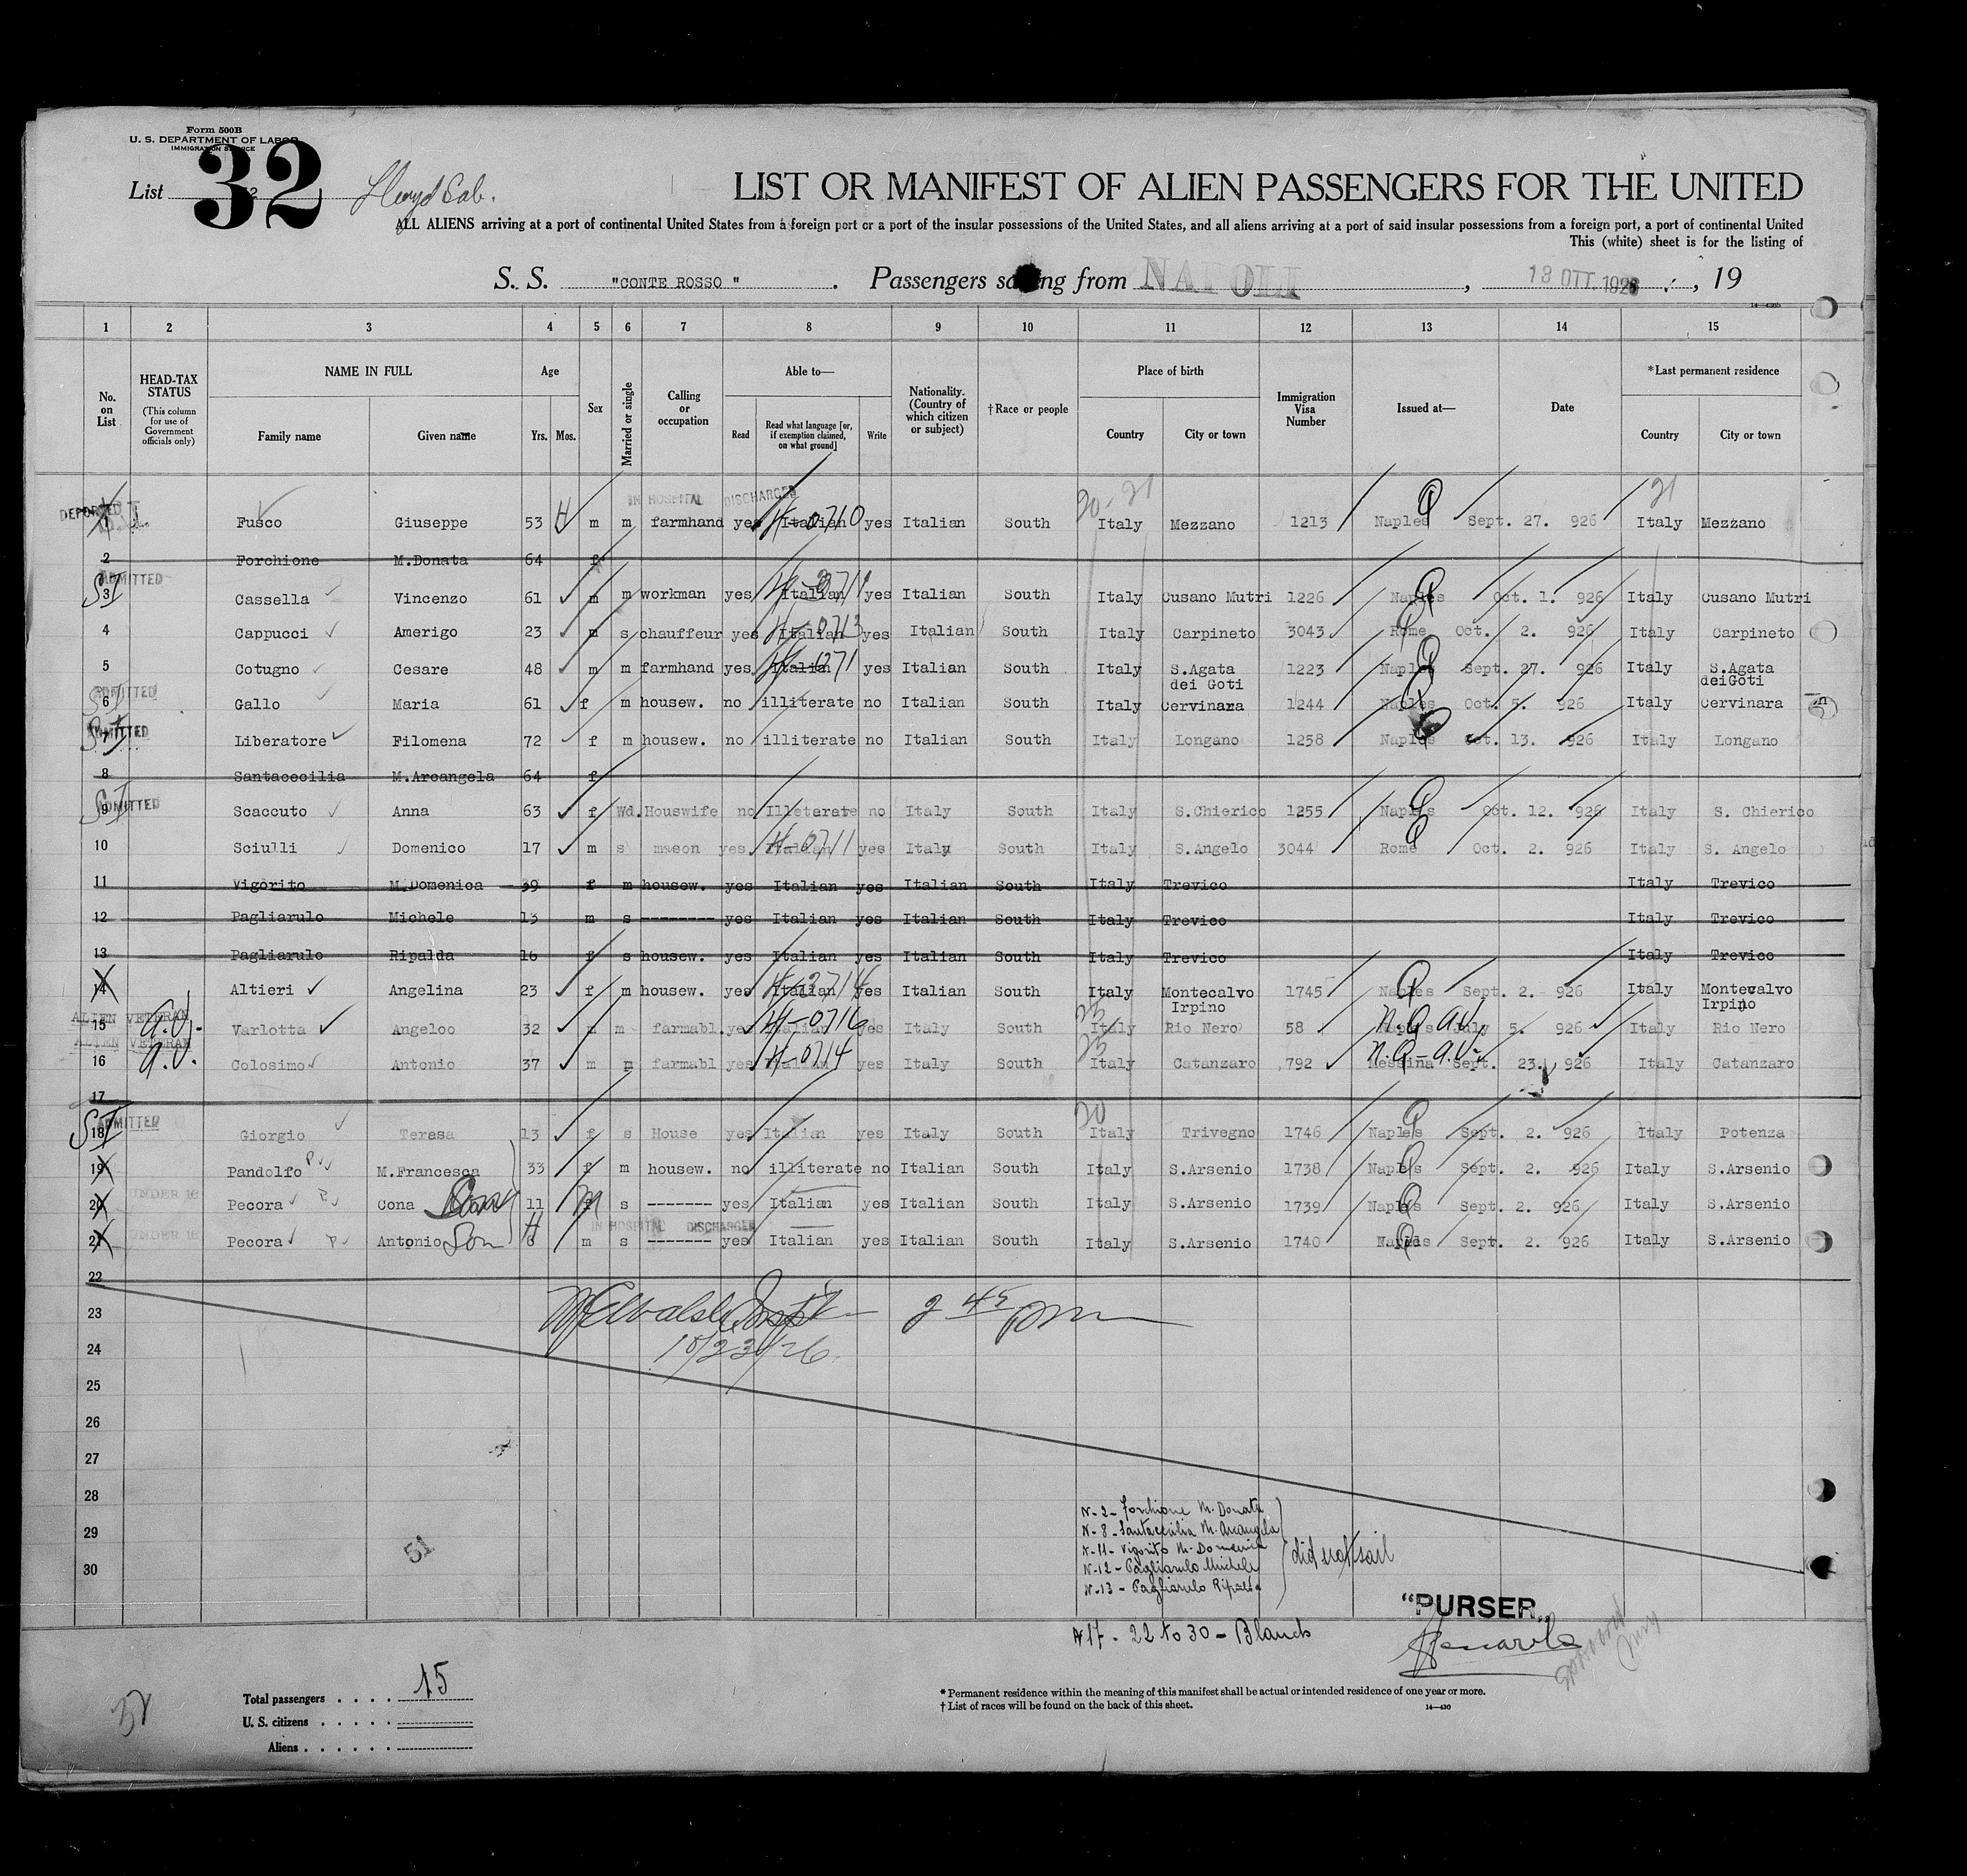 Form 500B
U. S. DEPARTMENT OF LABOR
IMMIGRATION SERVICE
List 32
LIST OR MANIFEST OF ALIEN PASSENGERS FOR THE UNITED
ALL ALIENS arriving at a port of continental United States from a foreign port or a port of the insular possessions of the United States, and all aliens arriving at a port of said insular possessions from a foreign port, a port of continental United
This (white) sheet is for the listing of
S. S. "CONTE ROSSO" . Passengers sailing from NAPOLI , 13 OTT. 1926 , 19
1 2 3 4 5 6 7 8 9 10 11 12 13 14 15
No. on List
HEAD-TAX STATUS (This column for use of Government officials only)
NAME IN FULL Family name Given name
Age Yrs. Mos.
Sex
Married or single
Calling or occupation
Able to— Read Read what language [or, if exemption claimed, on what ground] Write
Nationality. (Country of which citizen or subject)
†Race or people
Place of birth Country City or town
Immigration Visa Number
Issued at—
Date
*Last permanent residence Country City or town
IN HOSPITAL DISCHARGED 20-21 21
DEPORTED Fusco Giuseppe 53 H m m farmhand yes Italian yes Italian South Italy Mezzano 1213 Naples Sept. 27. 926 Italy Mezzano
2 Forchione M.Donata 64 f
ADMITTED
SI 3 Cassella Vincenzo 61 m m workman yes Italian yes Italian South Italy Cusano Mutri 1226 Naples Oct. 1. 926 Italy Cusano Mutri
4 Cappucci Amerigo 23 m s chauffeur yes Italian yes Italian South Italy Carpineto 3043 Rome Oct. 2. 926 Italy Carpineto
5 Cotugno Cesare 48 m m farmhand yes Italian yes Italian South Italy S.Agata dei Goti 1223 Naples Sept. 27. 926 Italy S.Agata deiGoti
ADMITTED
SI 6 Gallo Maria 61 f m housew. no illiterate no Italian South Italy Cervinara 1244 Naples Oct. 5. 926 Italy Cervinara
ADMITTED
SI 7 Liberatore Filomena 72 f m housew. no illiterate no Italian South Italy Longano 1258 Naples Oct. 13. 926 Italy Longano
8 Santacecilia M.Arcangela 64 f
SI 9 ADMITTED Scaccuto Anna 63 f Wd. Houswife no Illeterate no Italy South Italy S.Chierico 1255 Naples Oct. 12. 926 Italy S. Chierico
10 Sciulli Domenico 17 m s mason yes Italian yes Italy South Italy S.Angelo 3044 Rome Oct. 2. 926 Italy S. Angelo
11 Vigorito M.Domenica 39 f m housew. yes Italian yes Italian South Italy Trevico Italy Trevico
12 Pagliarulo Michele 13 m s -------- yes Italian yes Italian South Italy Trevico Italy Trevico
13 Pagliarulo Ripalda 16 f s housew. yes Italian yes Italian South Italy Trevico Italy Trevico
14 Altieri Angelina 23 f m housew. yes Italian yes Italian South Italy Montecalvo Irpino 1745 Naples Sept. 2. 926 Italy Montecalvo Irpino
ALIEN VETERAN
15 A.V. Varlotta Angeloo 32 m m farmabl. yes Italian yes Italy South Italy Rio Nero 58 Naples July 5. 926 Italy Rio Nero
ALIEN VETERAN
16 A.V. Colosimo Antonio 37 m m farmabl yes Italian yes Italy South Italy Catanzaro 792 Messina Sept. 23. 926 Italy Catanzaro
17
20
SI 18 ADMITTED Giorgio Terasa 13 f s House yes Italian yes Italy South Italy Trivegno 1746 Naples Sept. 2. 926 Italy Potenza
19 Pandolfo M.Francesca 33 f m housew. no illiterate no Italian South Italy S.Arsenio 1738 Naples Sept. 2. 926 Italy S.Arsenio
20 UNDER 16 Pecora Cona 11 m s ------- yes Italian yes Italian South Italy S.Arsenio 1739 Naples Sept. 2. 926 Italy S.Arsenio
IN HOSPITAL DISCHARGED
21 UNDER 16 Pecora Antonio Son 6 H m s ------- yes Italian yes Italian South Italy S.Arsenio 1740 Naples Sept. 2. 926 Italy S.Arsenio
22
23 2 45 pm
24 10/23/26
25
26
27
28
29
30
51
N-2- Forchione M. Donata
N-8-Santacecilia M. Arcangela
N-11- Vigorito M. Domenica
N-12- Pagliarulo Michele
N-13- Pagliarulo Ripalda
did not sail
"PURSER"
N 17 - 22 to 30 - Blanck
Total passengers . . . . 15
U. S. citizens . . . . .
Aliens . . . . . .
* Permanent residence within the meaning of this manifest shall be actual or intended residence of one year or more.
† List of races will be found on the back of this sheet.
14—430